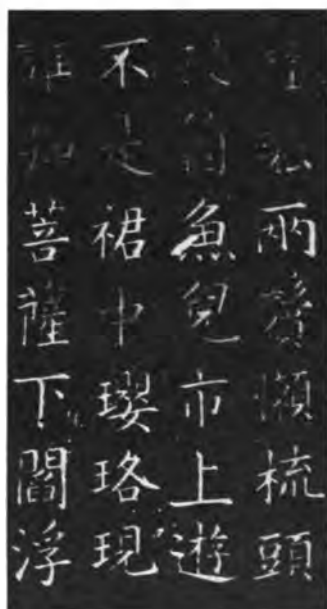 兩鬢懶梳頭
箇魚兒市上遊
不是裙中瓔珞現
誰知菩薩下閻浮